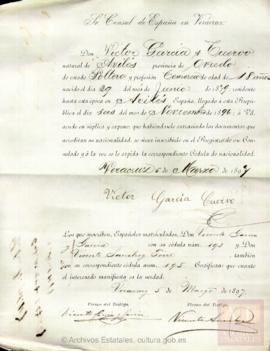 Sr. Consul de España en Veracruz
Don Victor García y Cuervo
natural de Avilés provincia de Oviedo
de estado Soltero y profesion Comercio de edad de 18 años
nacido el dia 29 del mes de Junio de 1879, residente
hasta esta época en Avilés España, llegado á esta República
el dia seis del mes de Noviembre 1896, á Vd.
atento en súplica y expone: que habiéndole extraviado los documentos que
acreditan su nacionalidad, se sirva inscribirle en el Registro de ese Consu-
lado y á la vez se le expida la correspondiente Cédula de nacionalidad.
Veracruz 5 de Marzo de 1897
Victor García Cuervo
Los que suscriben, Españoles matriculados, Don Vicente Garcia
y Garcia con su cédula núm. 193 y Don
Vicente Sanchez, tambien
con su correspondiente cédula núm. 195 Certifican: que cuanto
el interesado manifiesta es la verdad.
Veracruz 5 Marzo de 1897
Firma del Testigo, Firma del Testigo,
© Archivos Estatales, cultura.gob.es